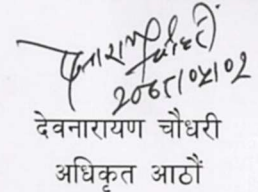 २०६८।०५।०२
देवनारायण चौधरी
अधिकृत आठौं